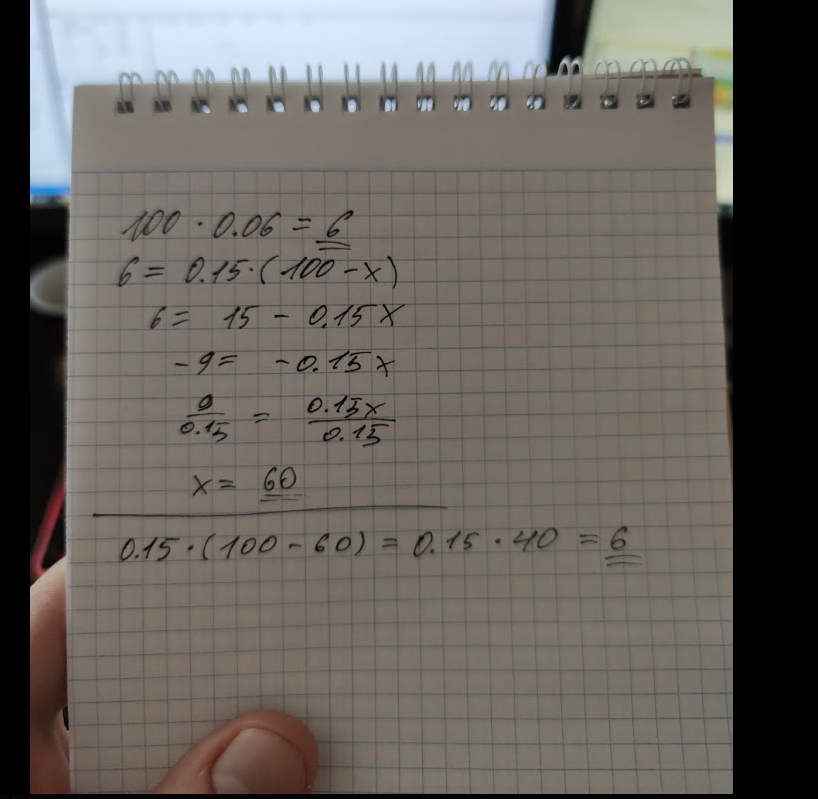 100 · 0.06 = 6
6 = 0.15 · (100 - x)
6 = 15 - 0.15x
-9 = -0.15x
9/0.15 = 0.15x/0.15
x = 60
0.15 · (100 - 60) = 0.15 · 40 = 6